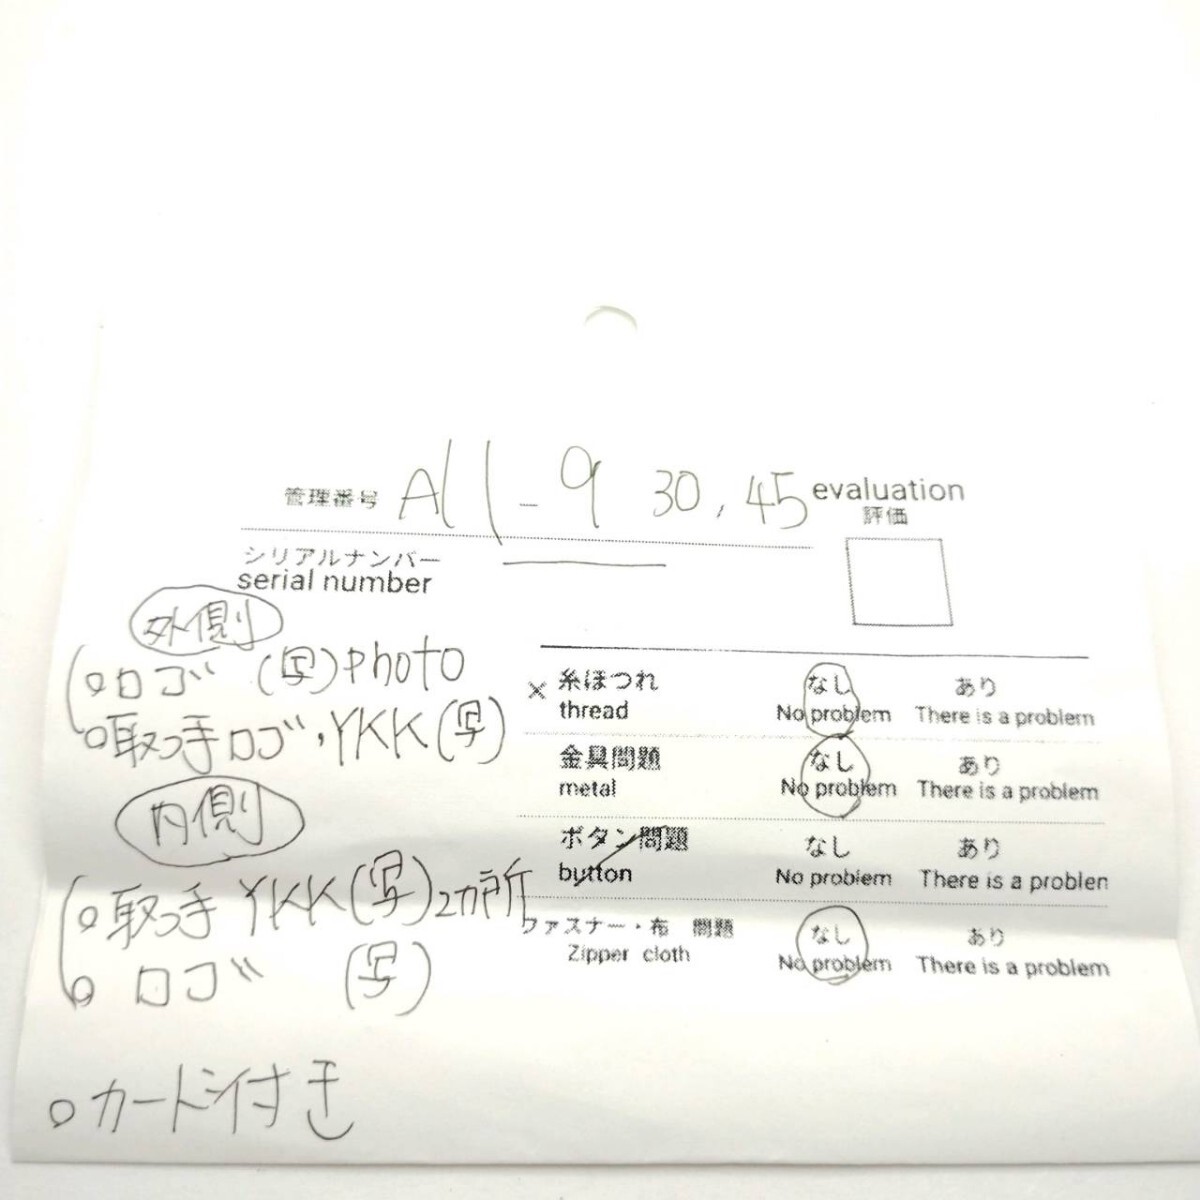 管理番号 All-9 30,45 evaluation
評価
シリアルナンバー
serial number
外側
ロゴ (写)Photo
取っ手ロゴ,YKK(写)
内側
取っ手 YKK(写)2カ所
ロゴ (写)
カード付き
× 糸ほつれ なし あり
thread No problem There is a problem
金具問題 なし あり
metal No problem There is a problem
ボタン問題 なし あり
button No problem There is a problen
ファスナー・布 問題 なし あり
Zipper cloth No problem There is a problem